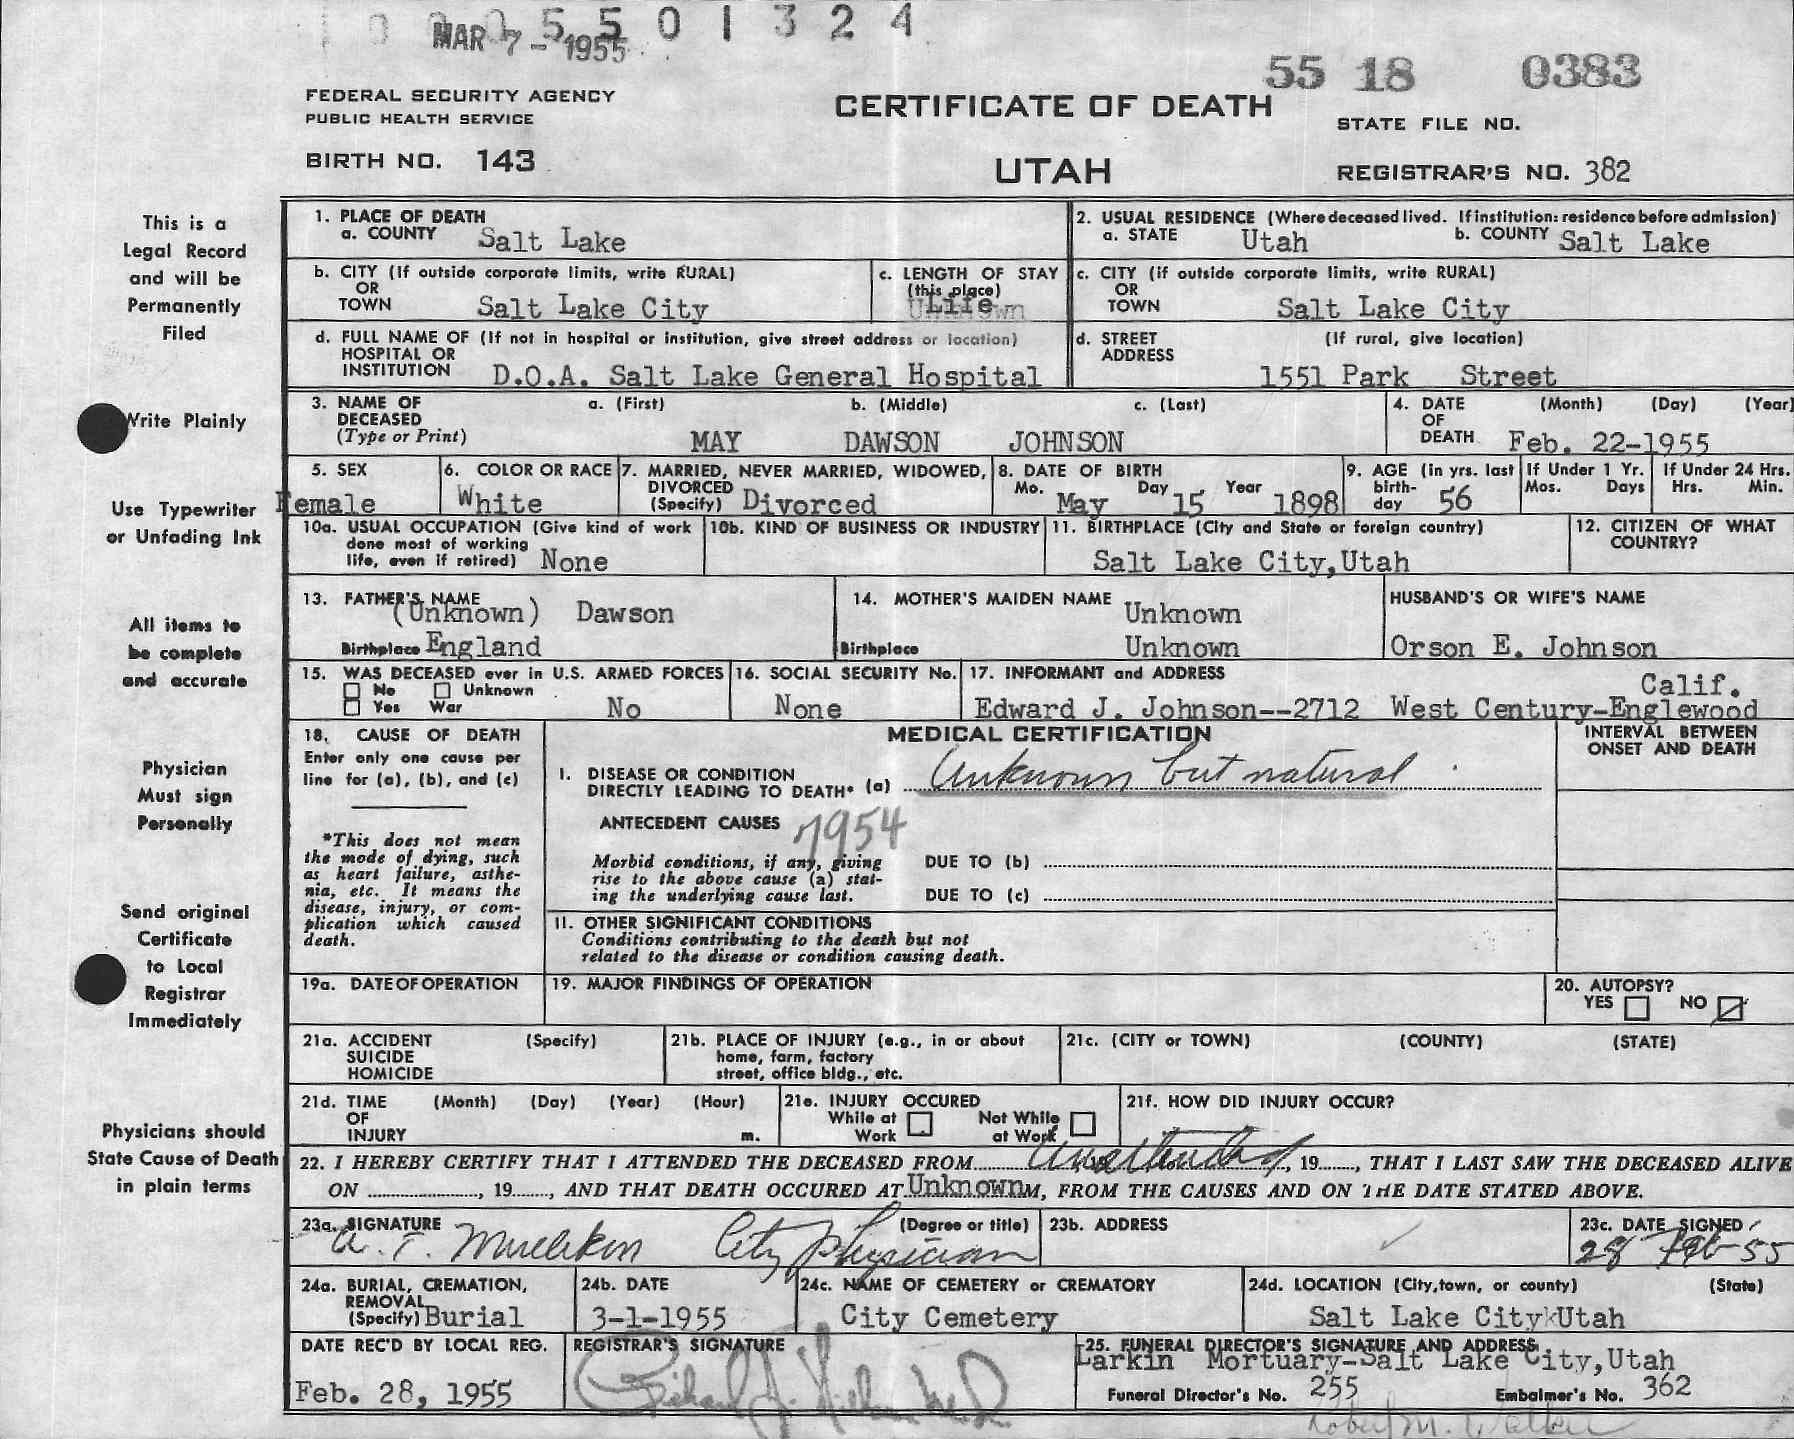 0 0 0 5 5 0 1 3 2 4
MAR 7 - 1955
55 18 0383
FEDERAL SECURITY AGENCY
PUBLIC HEALTH SERVICE
CERTIFICATE OF DEATH
STATE FILE NO.
BIRTH NO. 143
UTAH
REGISTRAR'S NO. 382
This is a
Legal Record
and will be
Permanently
Filed
Write Plainly
Use Typewriter
or Unfading Ink
All items to
be complete
and accurate
Physician
Must sign
Personally
Send original
Certificate
to Local
Registrar
Immediately
Physicians should
State Cause of Death
in plain terms
1. PLACE OF DEATH
a. COUNTY Salt Lake
2. USUAL RESIDENCE (Where deceased lived. If institution: residence before admission)
a. STATE Utah b. COUNTY Salt Lake
b. CITY (If outside corporate limits, write RURAL)
OR
TOWN Salt Lake City
c. LENGTH OF STAY
(this place)
Life
c. CITY (if outside corporate limits, write RURAL)
OR
TOWN Salt Lake City
d. FULL NAME OF (If not in hospital or institution, give street address or location)
HOSPITAL OR
INSTITUTION D.O.A. Salt Lake General Hospital
d. STREET (If rural, give location)
ADDRESS
1551 Park Street
3. NAME OF a. (First) b. (Middle) c. (Last)
DECEASED
(Type or Print) MAY DAWSON JOHNSON
4. DATE (Month) (Day) (Year)
OF
DEATH Feb. 22-1955
5. SEX
Female
6. COLOR OR RACE
White
7. MARRIED, NEVER MARRIED, WIDOWED,
DIVORCED
(Specify) Divorced
8. DATE OF BIRTH
Mo. May Day 15 Year 1898
9. AGE (in yrs. last
birth-
day 56
If Under 1 Yr.
Mos. Days
If Under 24 Hrs.
Hrs. Min.
10a. USUAL OCCUPATION (Give kind of work
done most of working
life, even if retired) None
10b. KIND OF BUSINESS OR INDUSTRY
11. BIRTHPLACE (City and State or foreign country)
Salt Lake City,Utah
12. CITIZEN OF WHAT
COUNTRY?
13. FATHER'S NAME
(Unknown) Dawson
Birthplace England
14. MOTHER'S MAIDEN NAME Unknown
Birthplace Unknown
HUSBAND'S OR WIFE'S NAME
Orson E. Johnson
15. WAS DECEASED ever in U.S. ARMED FORCES
No Unknown
Yes War No
16. SOCIAL SECURITY No.
None
17. INFORMANT and ADDRESS
Calif.
Edward J. Johnson--2712 West Century-Englewood
18. CAUSE OF DEATH
Enter only one cause per
line for (a), (b), and (c)
*This does not mean
the mode of dying, such
as heart failure, asthe-
nia, etc. It means the
disease, injury, or com-
plication which caused
death.
MEDICAL CERTIFICATION
INTERVAL BETWEEN
ONSET AND DEATH
I. DISEASE OR CONDITION
DIRECTLY LEADING TO DEATH* (a) Unknown but natural
ANTECEDENT CAUSES 7954
Morbid conditions, if any, giving
rise to the above cause (a) stat-
ing the underlying cause last.
DUE TO (b)
DUE TO (c)
II. OTHER SIGNIFICANT CONDITIONS
Conditions contributing to the death but not
related to the disease or condition causing death.
19a. DATE OF OPERATION
19. MAJOR FINDINGS OF OPERATION
20. AUTOPSY?
YES NO
21a. ACCIDENT (Specify)
SUICIDE
HOMICIDE
21b. PLACE OF INJURY (e.g., in or about
home, farm, factory
street, office bldg., etc.
21c. (CITY or TOWN) (COUNTY) (STATE)
21d. TIME (Month) (Day) (Year) (Hour)
OF
INJURY m.
21e. INJURY OCCURED
While at Not While
Work at Work
21f. HOW DID INJURY OCCUR?
22. I HEREBY CERTIFY THAT I ATTENDED THE DECEASED FROM Unattended, 19......, THAT I LAST SAW THE DECEASED ALIVE
ON ..................., 19......, AND THAT DEATH OCCURED AT Unknown M, FROM THE CAUSES AND ON THE DATE STATED ABOVE.
23a. SIGNATURE (Degree or title)
A. T. Mullikin City Physician
23b. ADDRESS
23c. DATE SIGNED
28 Feb-55
24a. BURIAL, CREMATION,
REMOVAL
(Specify) Burial
24b. DATE
3-1-1955
24c. NAME OF CEMETERY or CREMATORY
City Cemetery
24d. LOCATION (City,town, or county) (State)
Salt Lake City Utah
DATE REC'D BY LOCAL REG.
Feb. 28, 1955
REGISTRAR'S SIGNATURE
Richard J.
25. FUNERAL DIRECTOR'S SIGNATURE AND ADDRESS
Larkin Mortuary-Salt Lake City,Utah
Funeral Director's No. 255 Embalmer's No. 362
Robert M. Walker